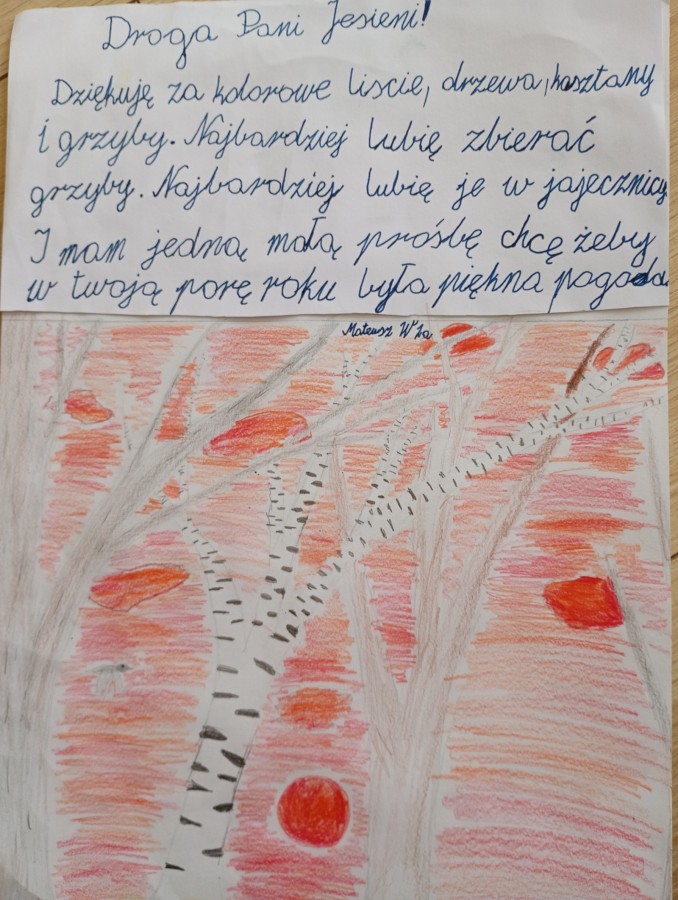 Droga Pani Jesieni!
Dziękuję za kolorowe liscie, drzewa, kasztany
i grzyby. Najbardziej lubię zbierać
grzyby. Najbardziej lubię je w jajecznicy
I mam jedną małą prośbę chcę żeby
w twoją porę roku była piękna pogoda
Mateusz W